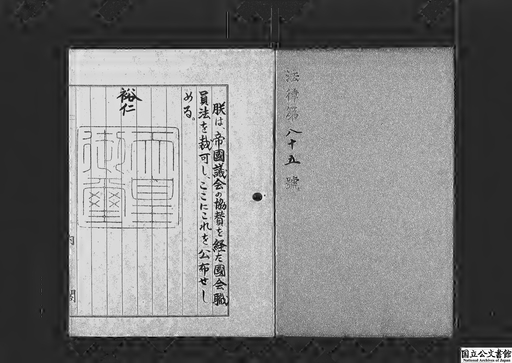 法律第八十五號
朕は、帝國議会の協賛を経た國会職
員法を裁可し、ここにこれを公布せし
める。
裕仁
天皇御璽
内閣
国立公文書館
National Archives of Japan